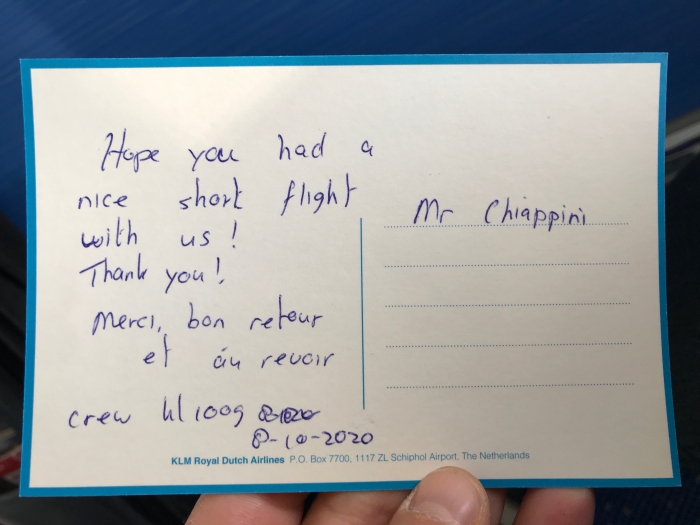 Hope you had a
nice short flight
with us!
Thank you!
Merci, bon retour
et áu revoir
crew kl 1009
8-10-2020
Mr Chiappini
KLM Royal Dutch Airlines P.O. Box 7700, 1117 ZL Schiphol Airport, The Netherlands